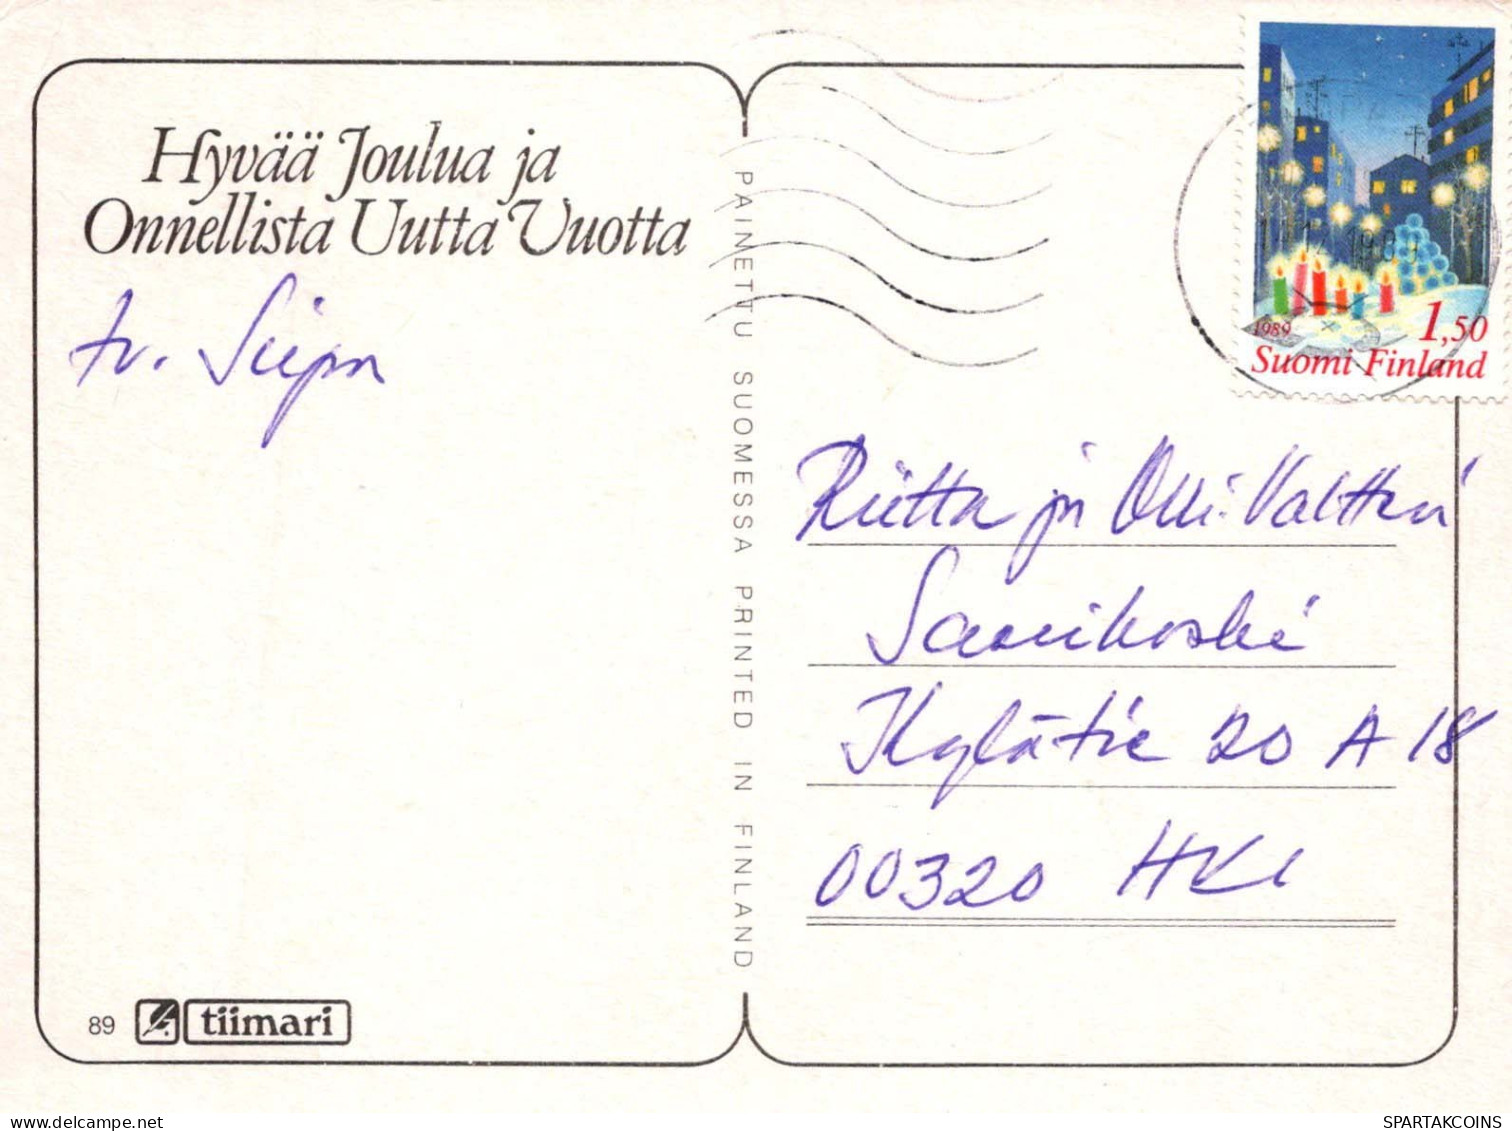 Hyvää Joulua ja
Onnellista Uutta Vuotta
tv. Seipo
PAINETTU SUOMESSA PRINTED IN FINLAND
1989
1,50
Suomi Finland
Riitta ja Olli-Valtteri
Saarikoski
Kylätie 20 A 18
00320 HKI
89 tiimari
SPARTAKCOINS